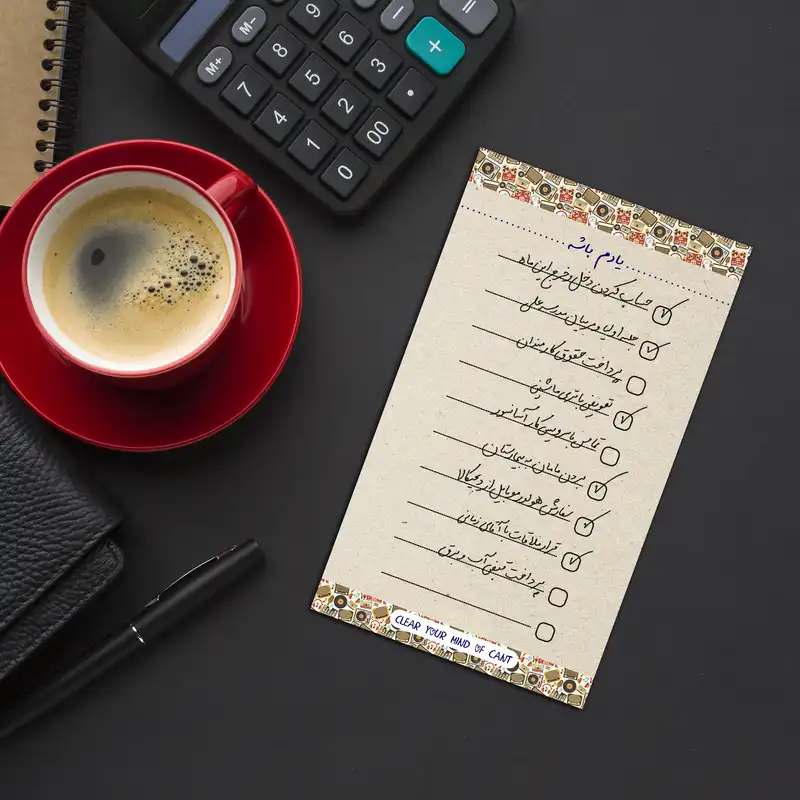 یادم باشه
حساب کردن دخل و خرج این ماه
جلسه اولیا و مربیان مدرسه علی
پرداخت حقوق کارمندان
تعویض باتری ماشین
تماس با سرویس کار آسانسور
بردن مامان به بیمارستان
سفارش هولدر موبایل از دیجیکالا
قرار ملاقات با آقای زمانی
پرداخت قبض آب و برق
CLEAR YOUR MIND OF CANT
M+
M-
7
8
9
4
5
6
1
2
3
0
00
.
+
−
=